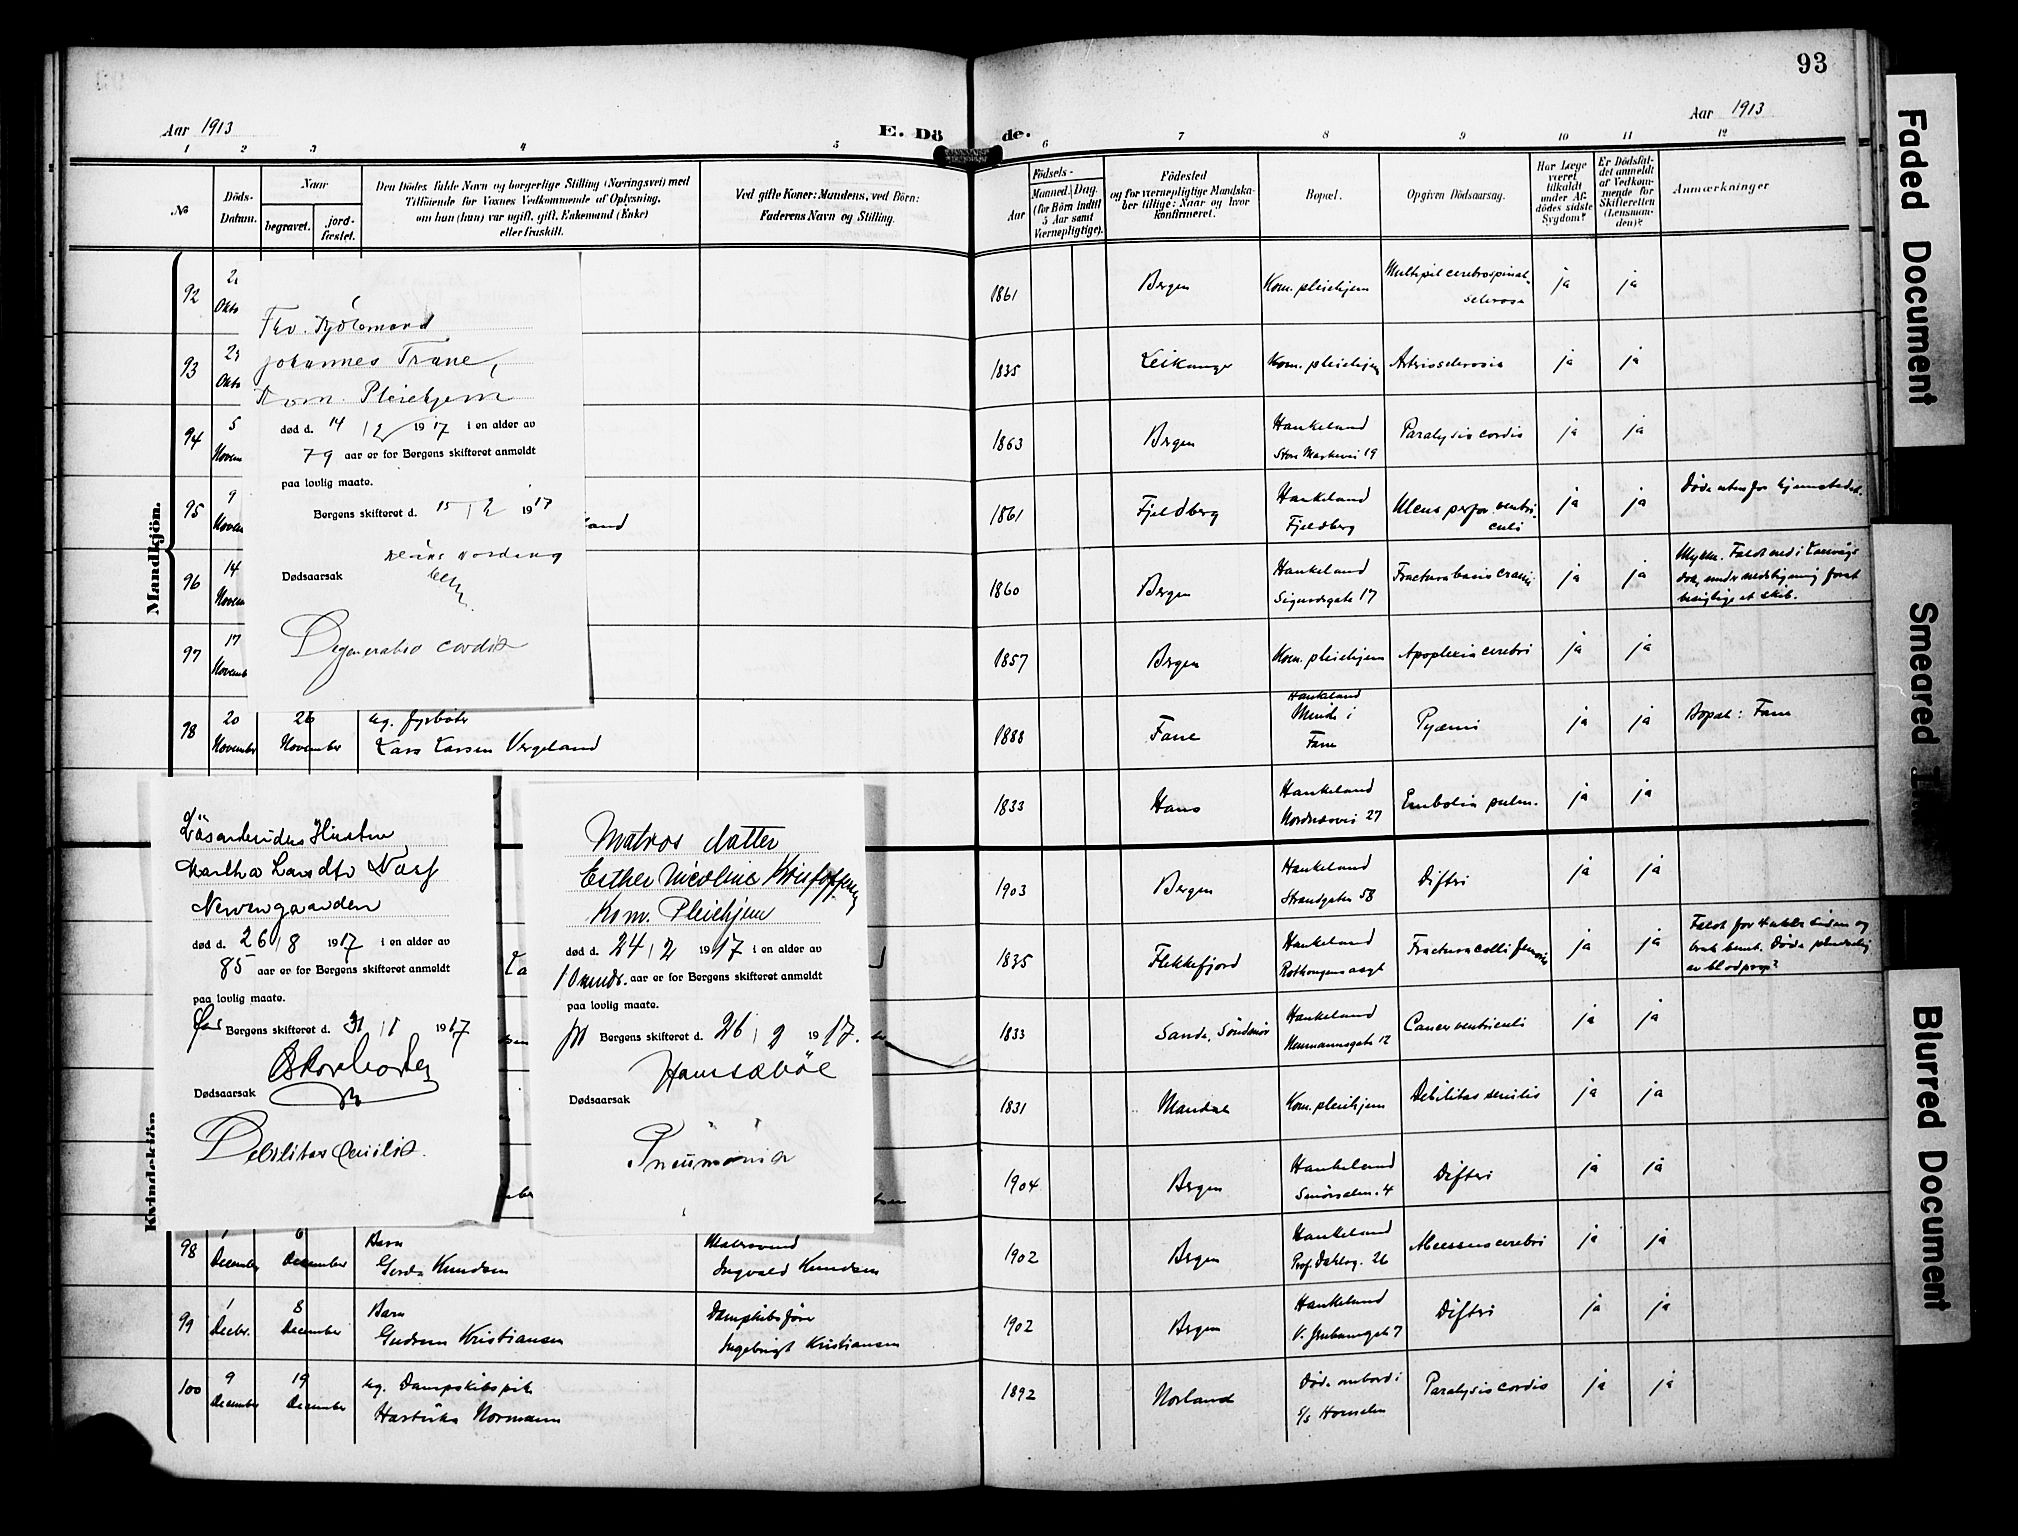 93
Aar 1913
E. Dö de.
Aar 1913
1 2 3 4 5 6 7 8 9 10 11 12
No
Döds-
Datum.
Naar
begravet.
jord-
fæstet.
Den Dödes fulde Navn og borgerlige Stilling (Næringsvei) med
Tilföiende for Voxnes Vedkommende af Oplysning,
om han (hun) var ugift, gift, Enkemand (Enke)
eller fraskilt.
Ved gifte Koner: Mandens, ved Börn:
Faderens Navn og Stilling.
Födsels-
Aar
Maaned. Dag.
(for Börn indtil
5 Aar samt
Værnepligtige).
Födested
og for værnepligtige Mandska-
ber tillige: Naar og hvor
konfirmeret.
Bopæl.
Opgiven Dödsaarsag.
Har Læge
været
tilkaldt
under Af-
dödes sidste
Sygdom?
Er Dödsfal-
det anmeldt
af Vedkom-
mende for
Skifteretten
(Lensman-
den)?
Anmærkninger
Mandkjön.
92 Okto 1861 Bergen Kom. pleiehjem Multipel cerebrospinal-
sclerose ja ja
93 Okto 1835 Leikanger Kom. pleiehjem Arteriosclerosis ja ja
94 5 Novem 1863 Bergen Haukeland
Store Markevei 19 Paralysis cordis ja ja
95 9 Novem land 1861 Fjeldberg Haukeland
Fjeldberg Ulcus perfor. ventri-
culi ja ja Døde uten for hjemstedet.
96 14 Novem 1860 Bergen Haukeland
Sigurdsgate 17 Fractura basis cranii ja ja Ulykke. Faldt ned i
dok, under nedstigning forat
besigtige et skib.
97 17 Novemb 1857 Bergen Kom. pleiehjem Apoplexia cerebri ja ja
98 20 November 26 November ug. fyrbøter
Lars Larsen Vergeland 1888 Fane Haukeland
Minde i
Fane Pyæmi ja ja Bopæl: Fane
1833 Haus Haukeland
Nordnæsvei 27 Embolia pulm. ja ja
Johannes Trane,
Kom. Pleiehjem
død d. 14 / 2 1917 i en alder av
79 aar er for Bergens skifteret anmeldt
paa lovlig maate.
Bergens skifteret d. 15 / 2 1917
Dødsaarsak
Degeneratio cordis
Hustru
Martha
død d. 26 / 8 1917 i en alder av
85 aar er for Bergens skifteret anmeldt
paa lovlig maate.
For Bergens skifteret d. 31 / 1 1917
Dødsaarsak
Debilitas senilis.
Matros datter
Esther Nicoline Kristoffersen
Kom. Pleiehjem
død d. 24 / 2 1917 i en alder av
10 mndr. aar er for Bergens skifteret anmeldt
paa lovlig maate.
Bergens skifteret d. 26 / 2 1917.
Dødsaarsak
Pneumonia
Kvindekjön
1903 Bergen Haukeland
Strandgaten 58 Difteri ja ja
1835 Flekkefjord Haukeland
Fractura colli femoris ja ja
brak benet. Døde pludselig
av blodprop?
1833 Sande, Söndmör Haukeland
Neumannsgate 12 Cancer ventriculi ja ja
1831 Mandal Kom. pleiehjem Debilitas senilis ja ja
1904 Bergen Haukeland
Smörsalm. 4 Difteri ja ja
98 1 December 6 December Barn
Gerda Knudsen
Ingvald Knudsen 1902 Bergen Haukeland
Prof. Dahlsg. 26 Abcessus cerebri ja ja
99 1 Decbr. 8 December Barn
Gudrun Kristiansen Dampskibsfører
Ingebrigt Kristiansen 1902 Bergen Haukeland
Difteri ja ja
100 9 December 19 December ug. Dampskibspike
Normann 1892 Norland Døde ombord i
s/s Hornelen Paralysis cordis ja ja
Faded Document
Smeared
Blurred Document